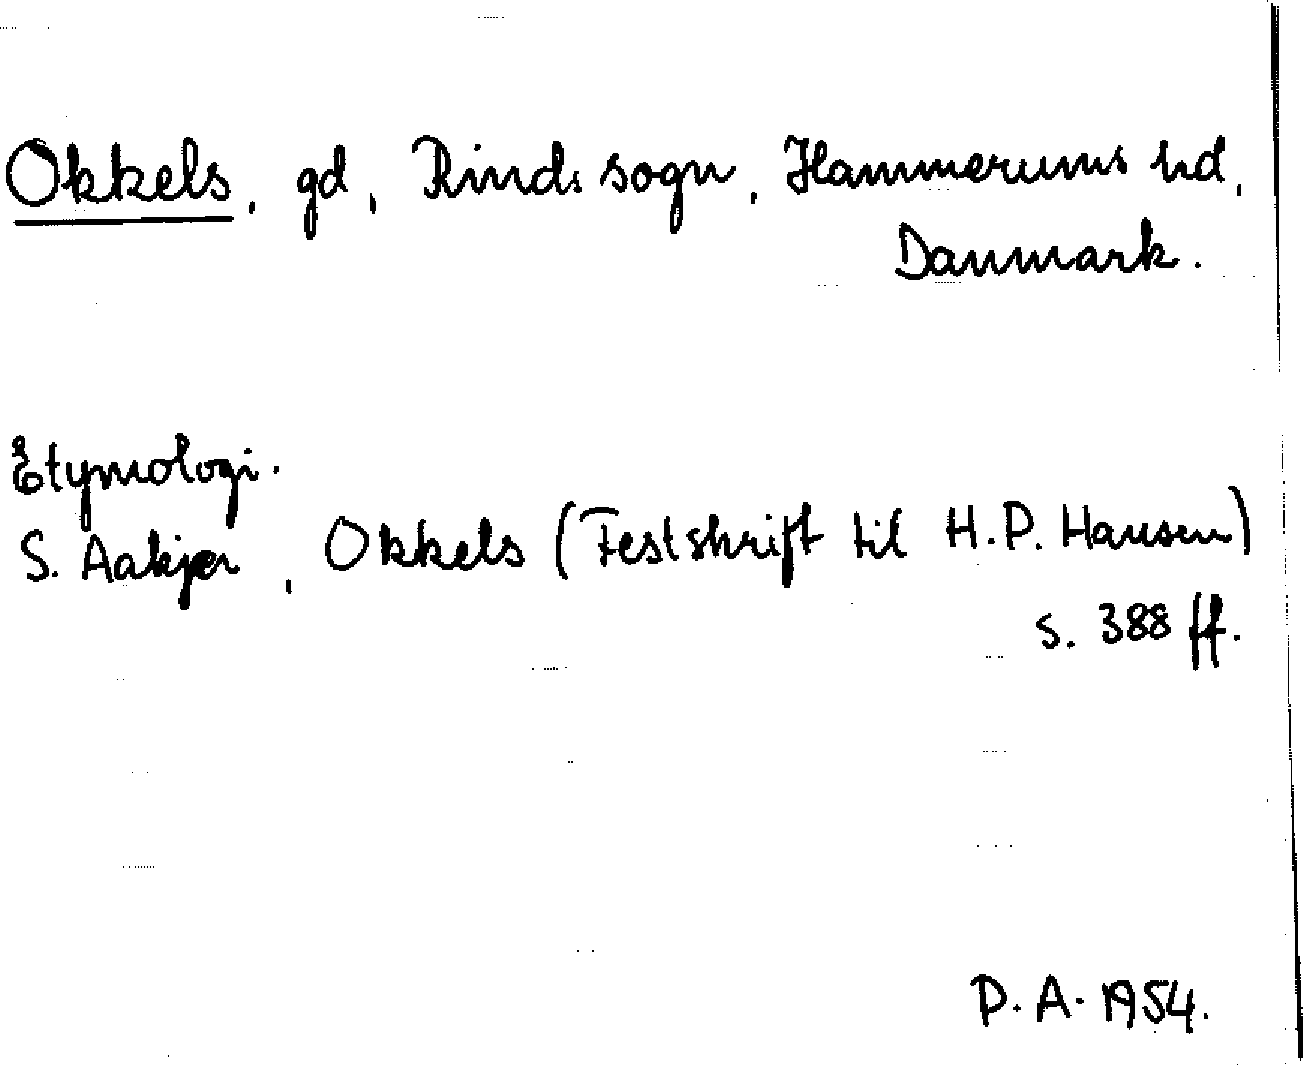 Okkels, gd, Rinds sogn, Hammerums hd,
Danmark.
Etymologi.
S. Aakjær, Okkels (Festskrift til H.P. Hansen)
s. 388 ff.
P. A. 1954.